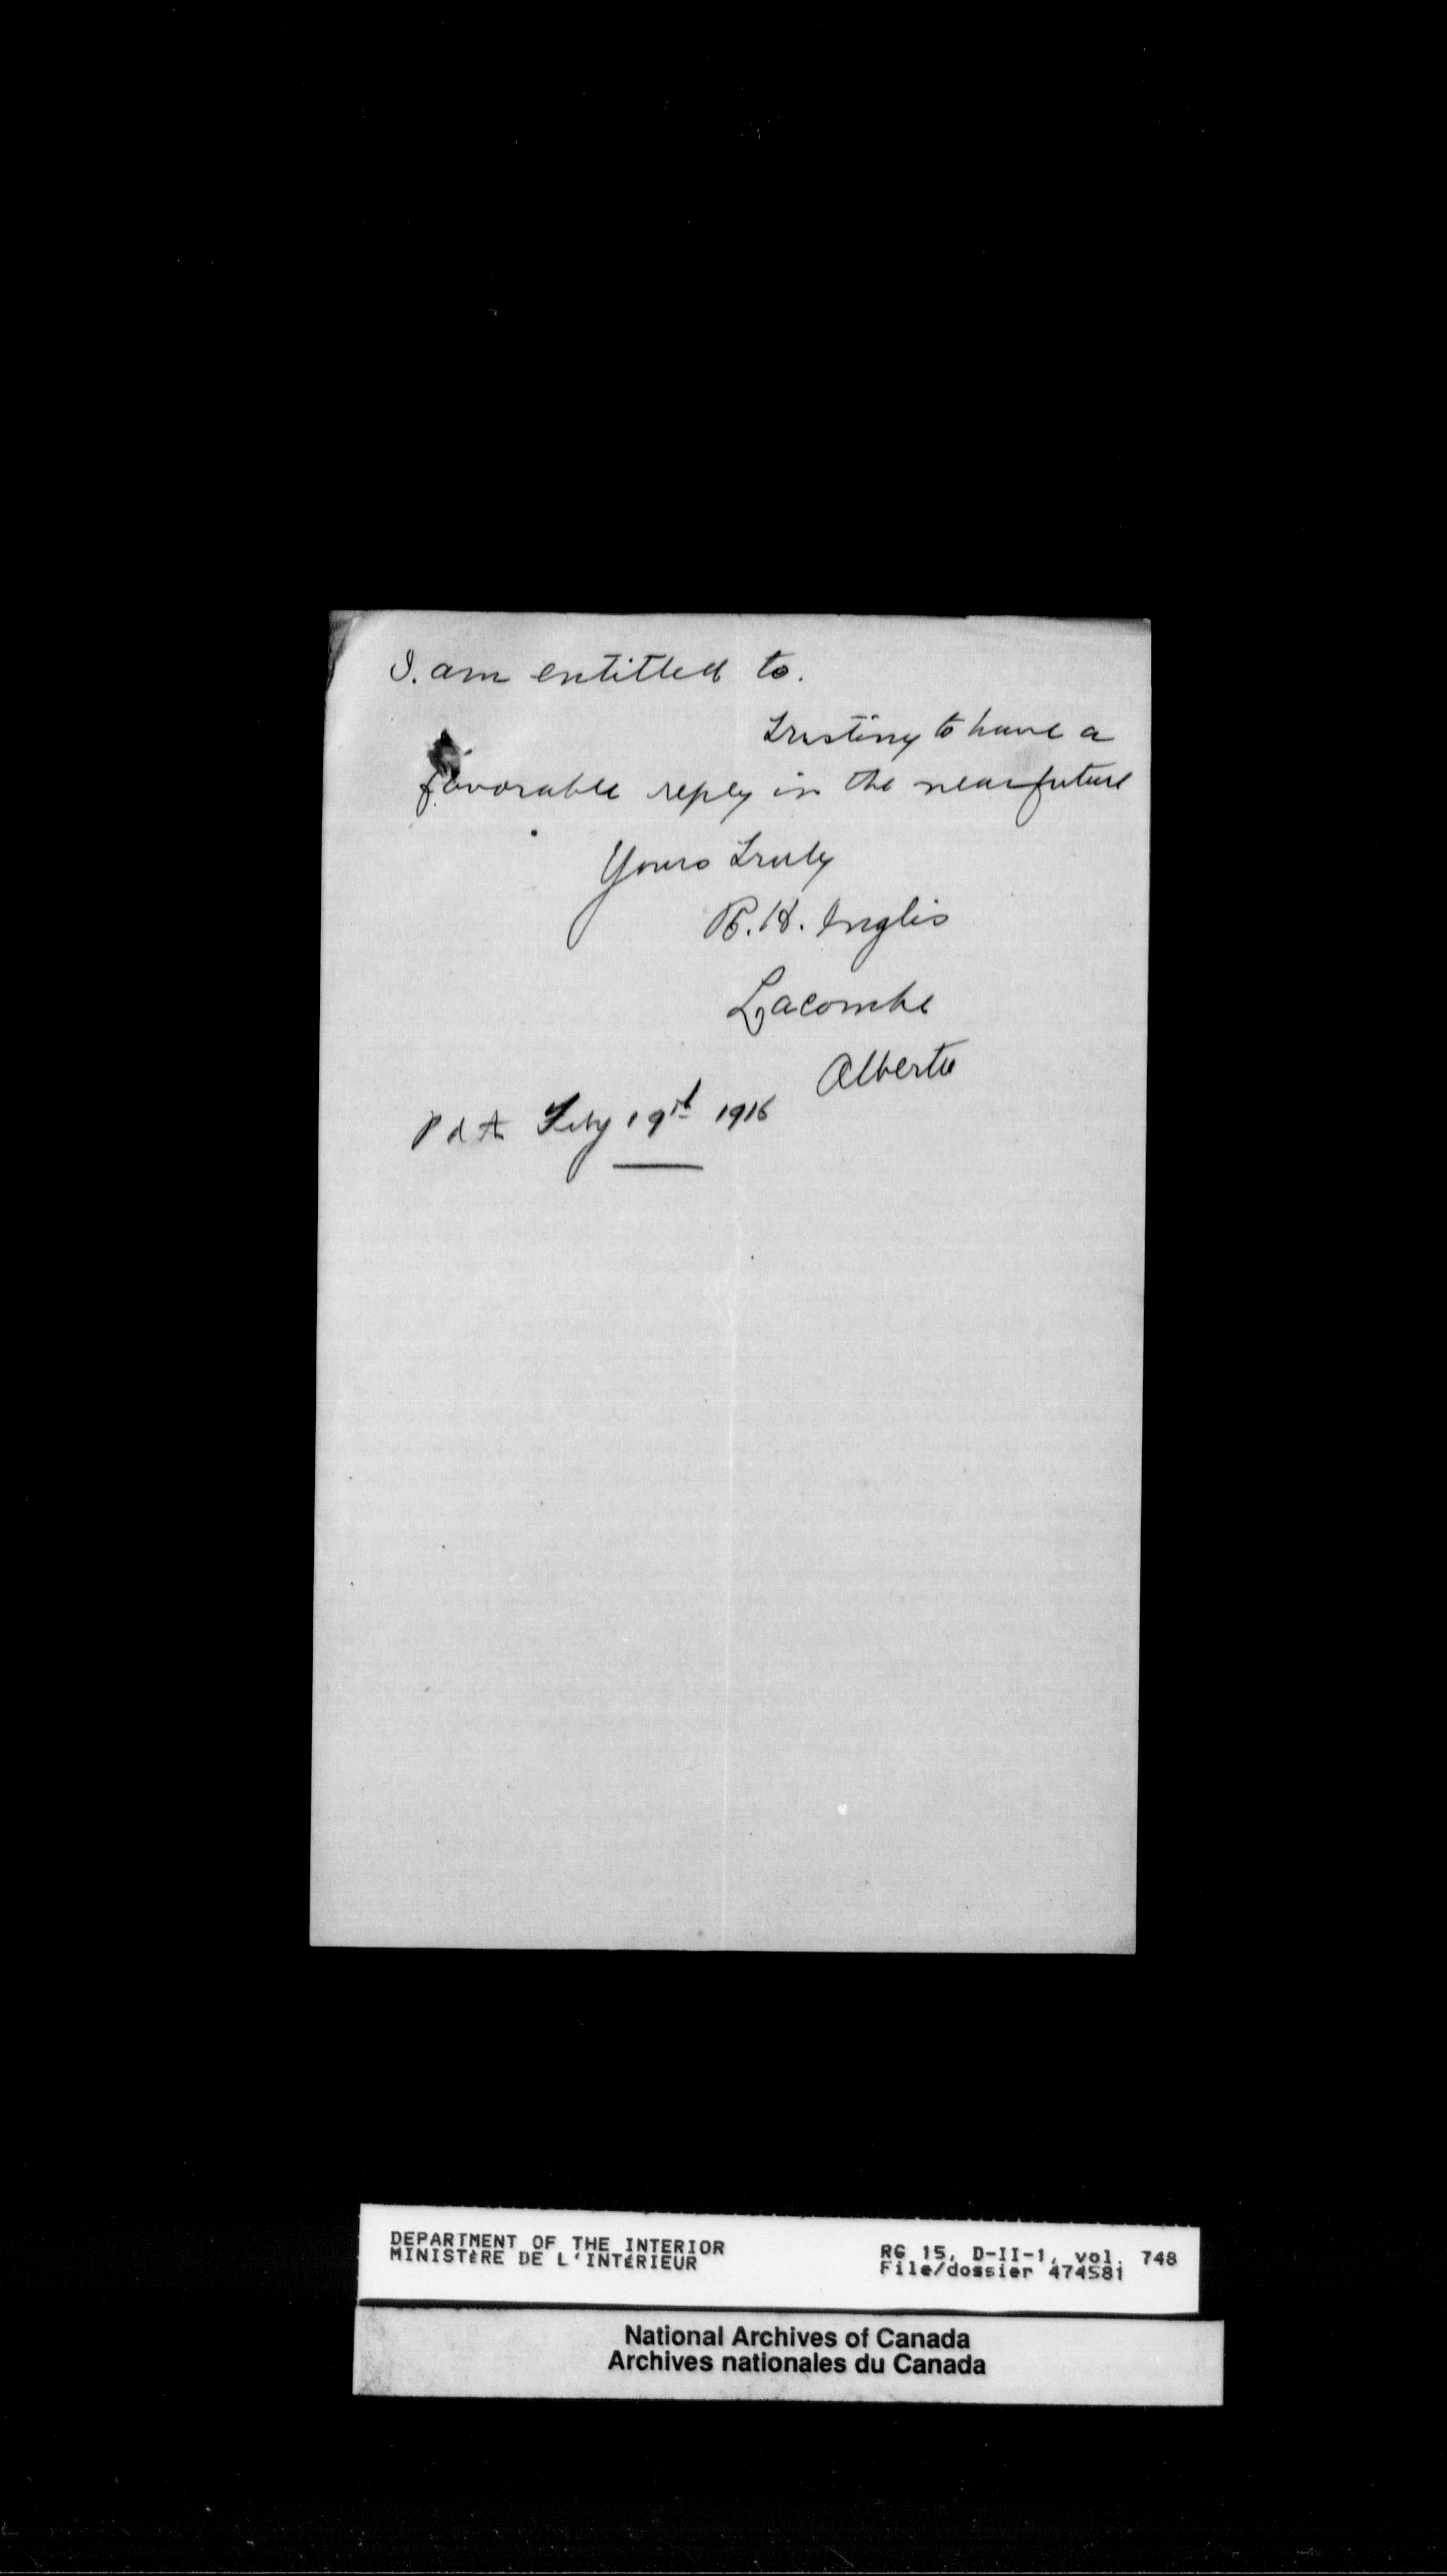 I. am entitled to.
Trusting to have a
favorable reply in the near future
Yours Truly
R. H. Inglis
Lacombe
Alberta
Feby 19th 1916
DEPARTMENT OF THE INTERIOR
MINISTÈRE DE L'INTÉRIEUR
RG 15, D-II-1, vol. 748
File/dossier 474581
National Archives of Canada
Archives nationales du Canada